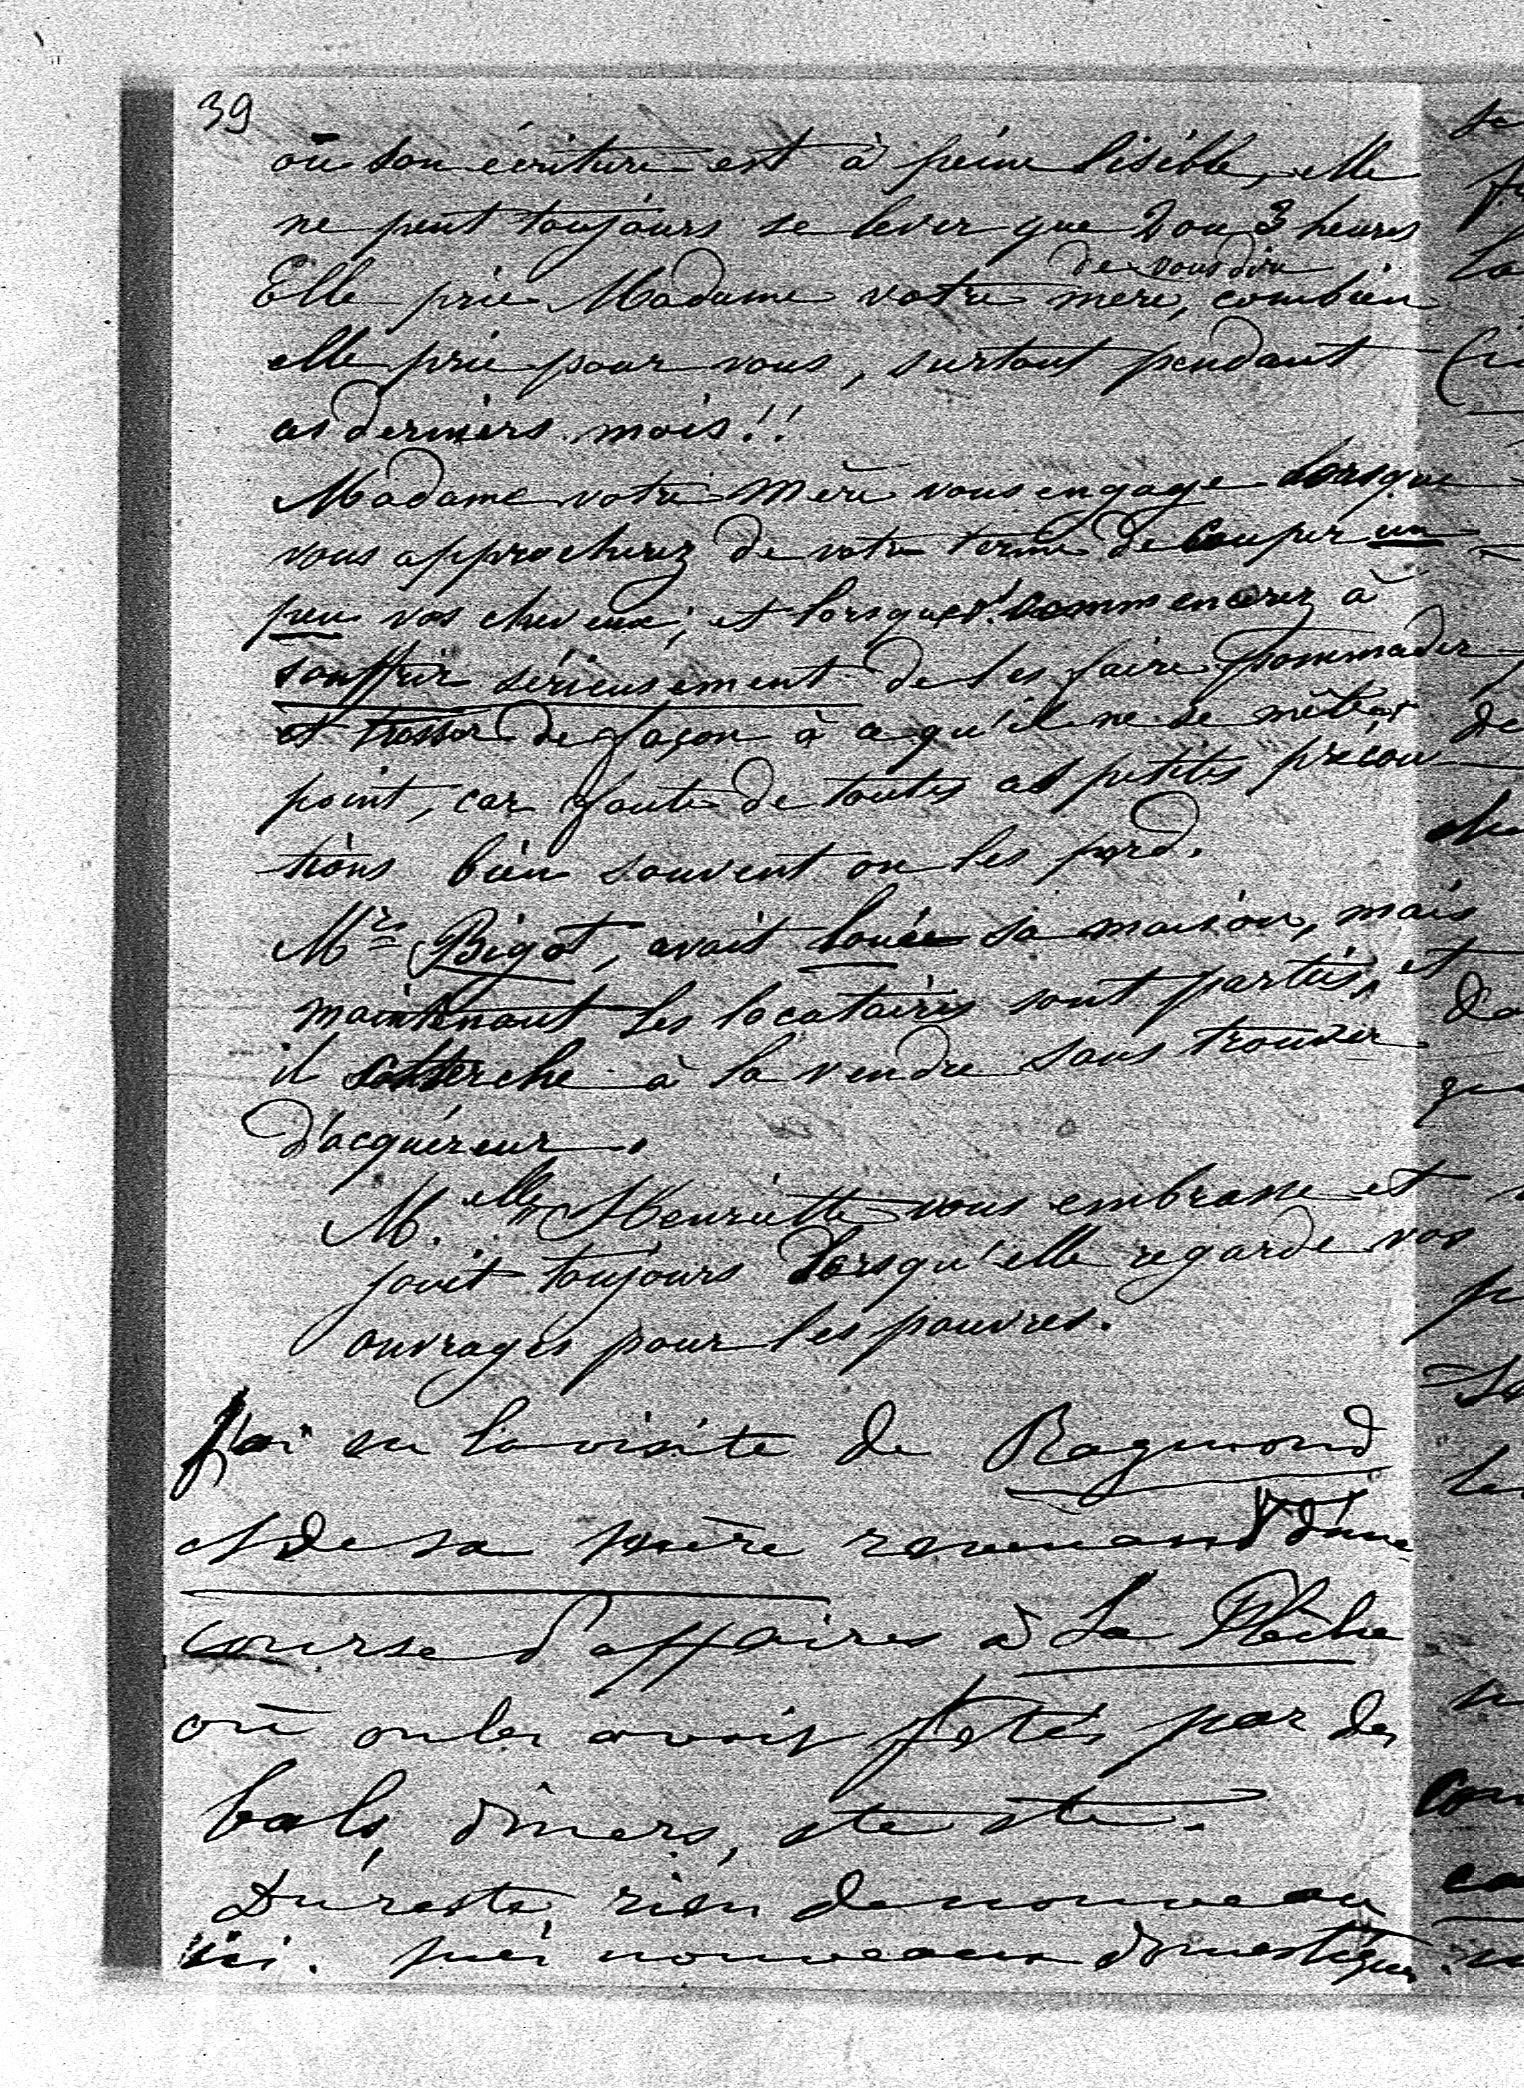 39
où son écriture est à peine lisible, elle
ne peut toujours se lever que 2 ou 3 heures
de vous dire
Elle prie Madame votre mère, combien
elle prie pour vous, surtout pendant
ces derniers mois!!
Madame votre Mère vous engage lorsque
vous approcherez de votre terme de couper un
peu vos cheveux; et lorsque v. commencerez à
souffrir sérieusement de les faire pommader
et tresser de façon à ce qu'il ne se mêlent
point, car faute de toutes ces petites précau
-tions bien souvent on les perd.
Mrs Bigot, avait louée sa maison, mais
maintenant les locataires sont partis, et
il cherche à la vendre sans trouver
d'acquéreur.
M.elle Henriette vous embrasse et
jouit toujours lorsqu'elle regarde vos
ouvrages pour les pauvres.
J'ai eu la visite de Raymond
et de sa mère revenant d'une
course d'affaires à La Flèche
où on les avait fêtés par des
bals, dîners, etc etc.
Du reste, rien de nouveau
ici. mes nouveaux domestiques